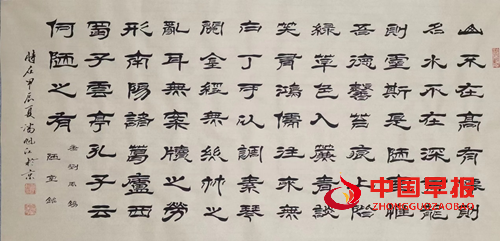 山不在高有仙則
名水不在深有龍
則靈斯是陋室惟
吾德馨苔痕上階
綠草色入簾青談
笑有鴻儒往來無
白丁可以調素琴
閱金經無絲竹之
亂耳無案牘之勞
形南陽諸葛廬西
蜀子雲亭孔子云
何陋之有
唐劉禹錫
陋室銘
時在甲辰夏潘江於京
中国早报
ZHONGGUOZAOBAO